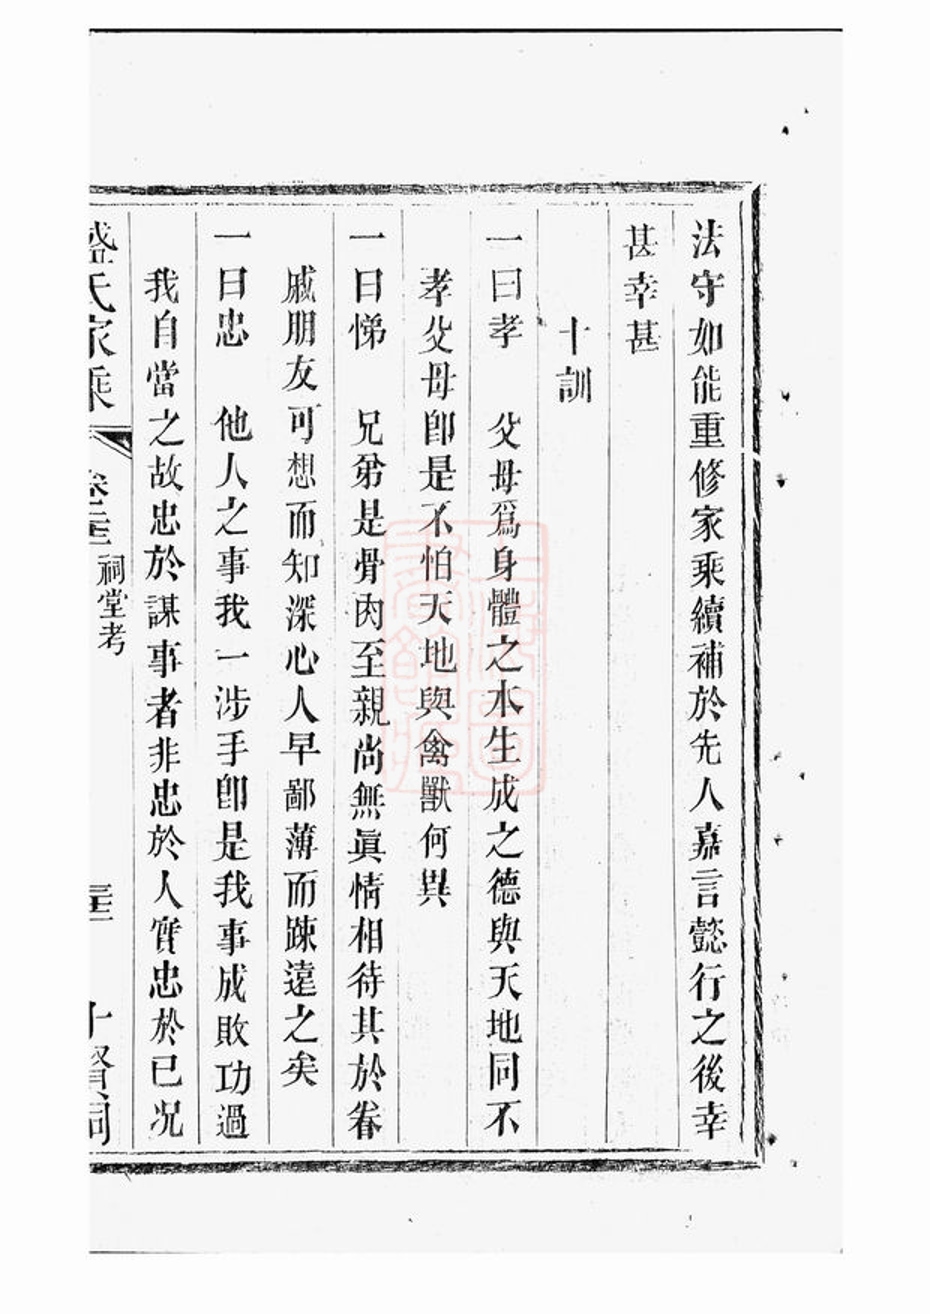 法守如能重修家乘續補於先人嘉言懿行之後幸
甚幸甚
十訓
一曰孝 父母爲身體之本生成之德與天地同不
孝父母即是不怕天地與禽獸何異
一曰悌 兄弟是骨肉至親尚無眞情相待其於眷
戚朋友可想而知深心人早鄙薄而踈遠之矣
一曰忠 他人之事我一涉手即是我事成敗功過
我自當之故忠於謀事者非忠於人實忠於已况
盛氏家乘 祠堂考